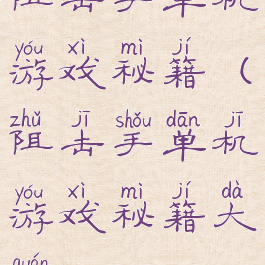 阻击手单机
yóu xì mì jí
游戏秘籍（
zhǔ jī shǒu dān jī
阻击手单机
yóu xì mì jí dà
游戏秘籍大
quán